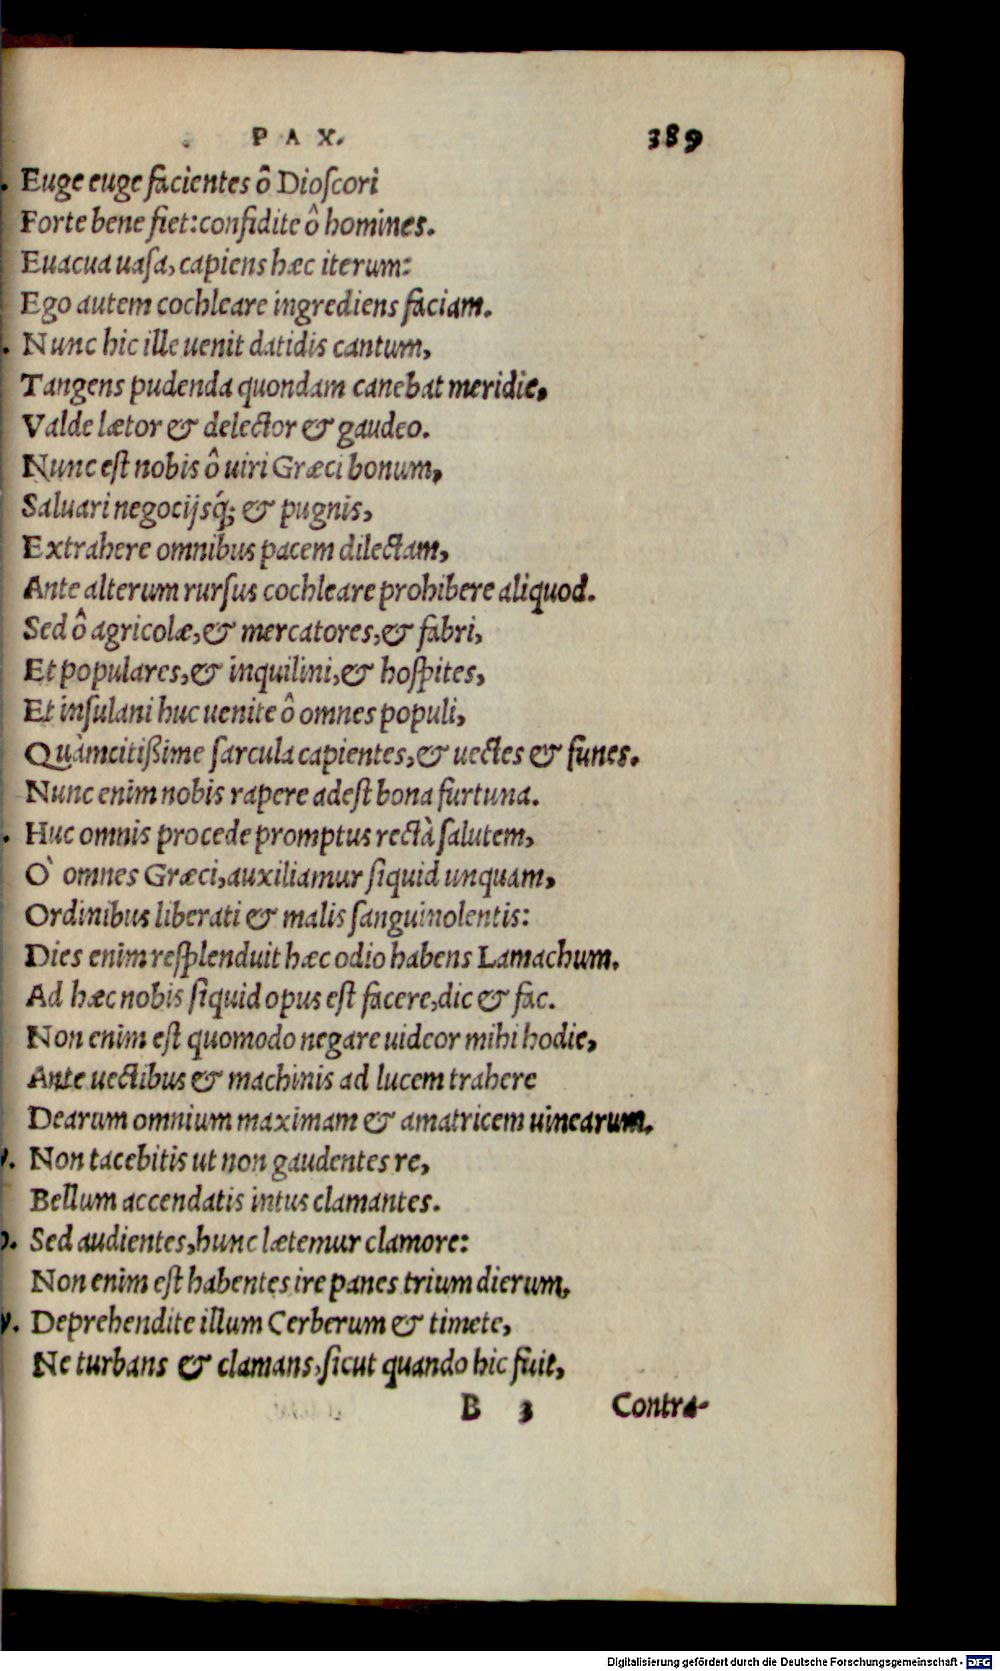 PAX. 389
. Euge euge facientes ô Dioſcori
Forte bene fiet: confidite ô homines.
Euacua uaſa, capiens hæc iterum:
Ego autem cochleare ingrediens faciam.
. Nunc hic ille uenit datidis cantum,
Tangens pudenda quondam canebat meridie,
Valde lætor & delector & gaudeo.
Nunc eſt nobis ô uiri Græci bonum,
Saluari negocijsq́; & pugnis,
Extrahere omnibus pacem dilectam,
Ante alterum rurſus cochleare prohibere aliquod.
Sed ô agricolæ, & mercatores, & fabri,
Et populares, & inquilini, & hoſpites,
Et inſulani huc uenite ô omnes populi,
Quàmcitißime ſarcula capientes, & uectes & funes.
Nunc enim nobis rapere adeſt bona furtuna.
. Huc omnis procede promptus rectà ſalutem,
Ò omnes Græci, auxiliamur ſiquid unquam,
Ordinibus liberati & malis ſanguinolentis:
Dies enim reſplenduit hæc odio habens Lamachum.
Ad hæc nobis ſiquid opus eſt facere, dic & fac.
Non enim eſt quomodo negare uideor mihi hodie,
Ante uectibus & machinis ad lucem trahere
Dearum omnium maximam & amatricem uinearum.
. Non tacebitis ut non gaudentes re,
Bellum accendatis intus clamantes.
. Sed audientes, hunc lætemur clamore:
Non enim eſt habentes ire panes trium dierum,
. Deprehendite illum Cerberum & timete,
Ne turbans & clamans, ſicut quando hic fuit,
B 3 Contra-
Digitalisierung gefördert durch die Deutsche Forschungsgemeinschaft - DFG